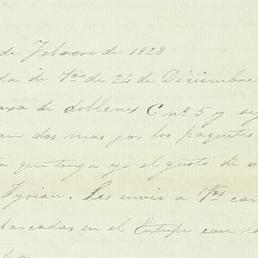 de Febrero de 1828
da de Vds de 24 de Diciembre
caxa de doblones C nº 5 y se
an dos mas por los paquetes
qe tenga yo el gusto de
Tyrian. Les envio a Vds
barcadas en el Eutrepe con la